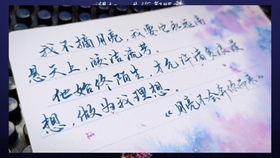 我不摘月亮，我要它永远高
悬天上，皎洁流芳。
他始终陌生，才允许诸多浪漫
想，做为我理想。
《月亮不会奔你而来》